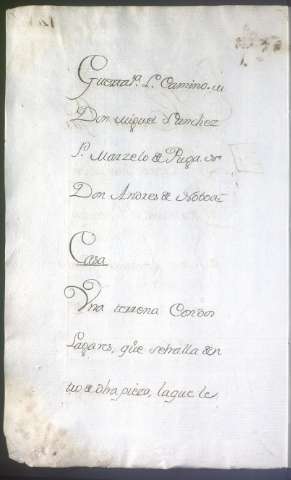 Guerra P.e L.e Camino. M
Don Miguel Sanchez
S. Marzelo de Puga. N.
Don Andres de Noboa
Casa
Vna terrena Con dos
Lagares, que se halla den
tro de dha pieza, la que le